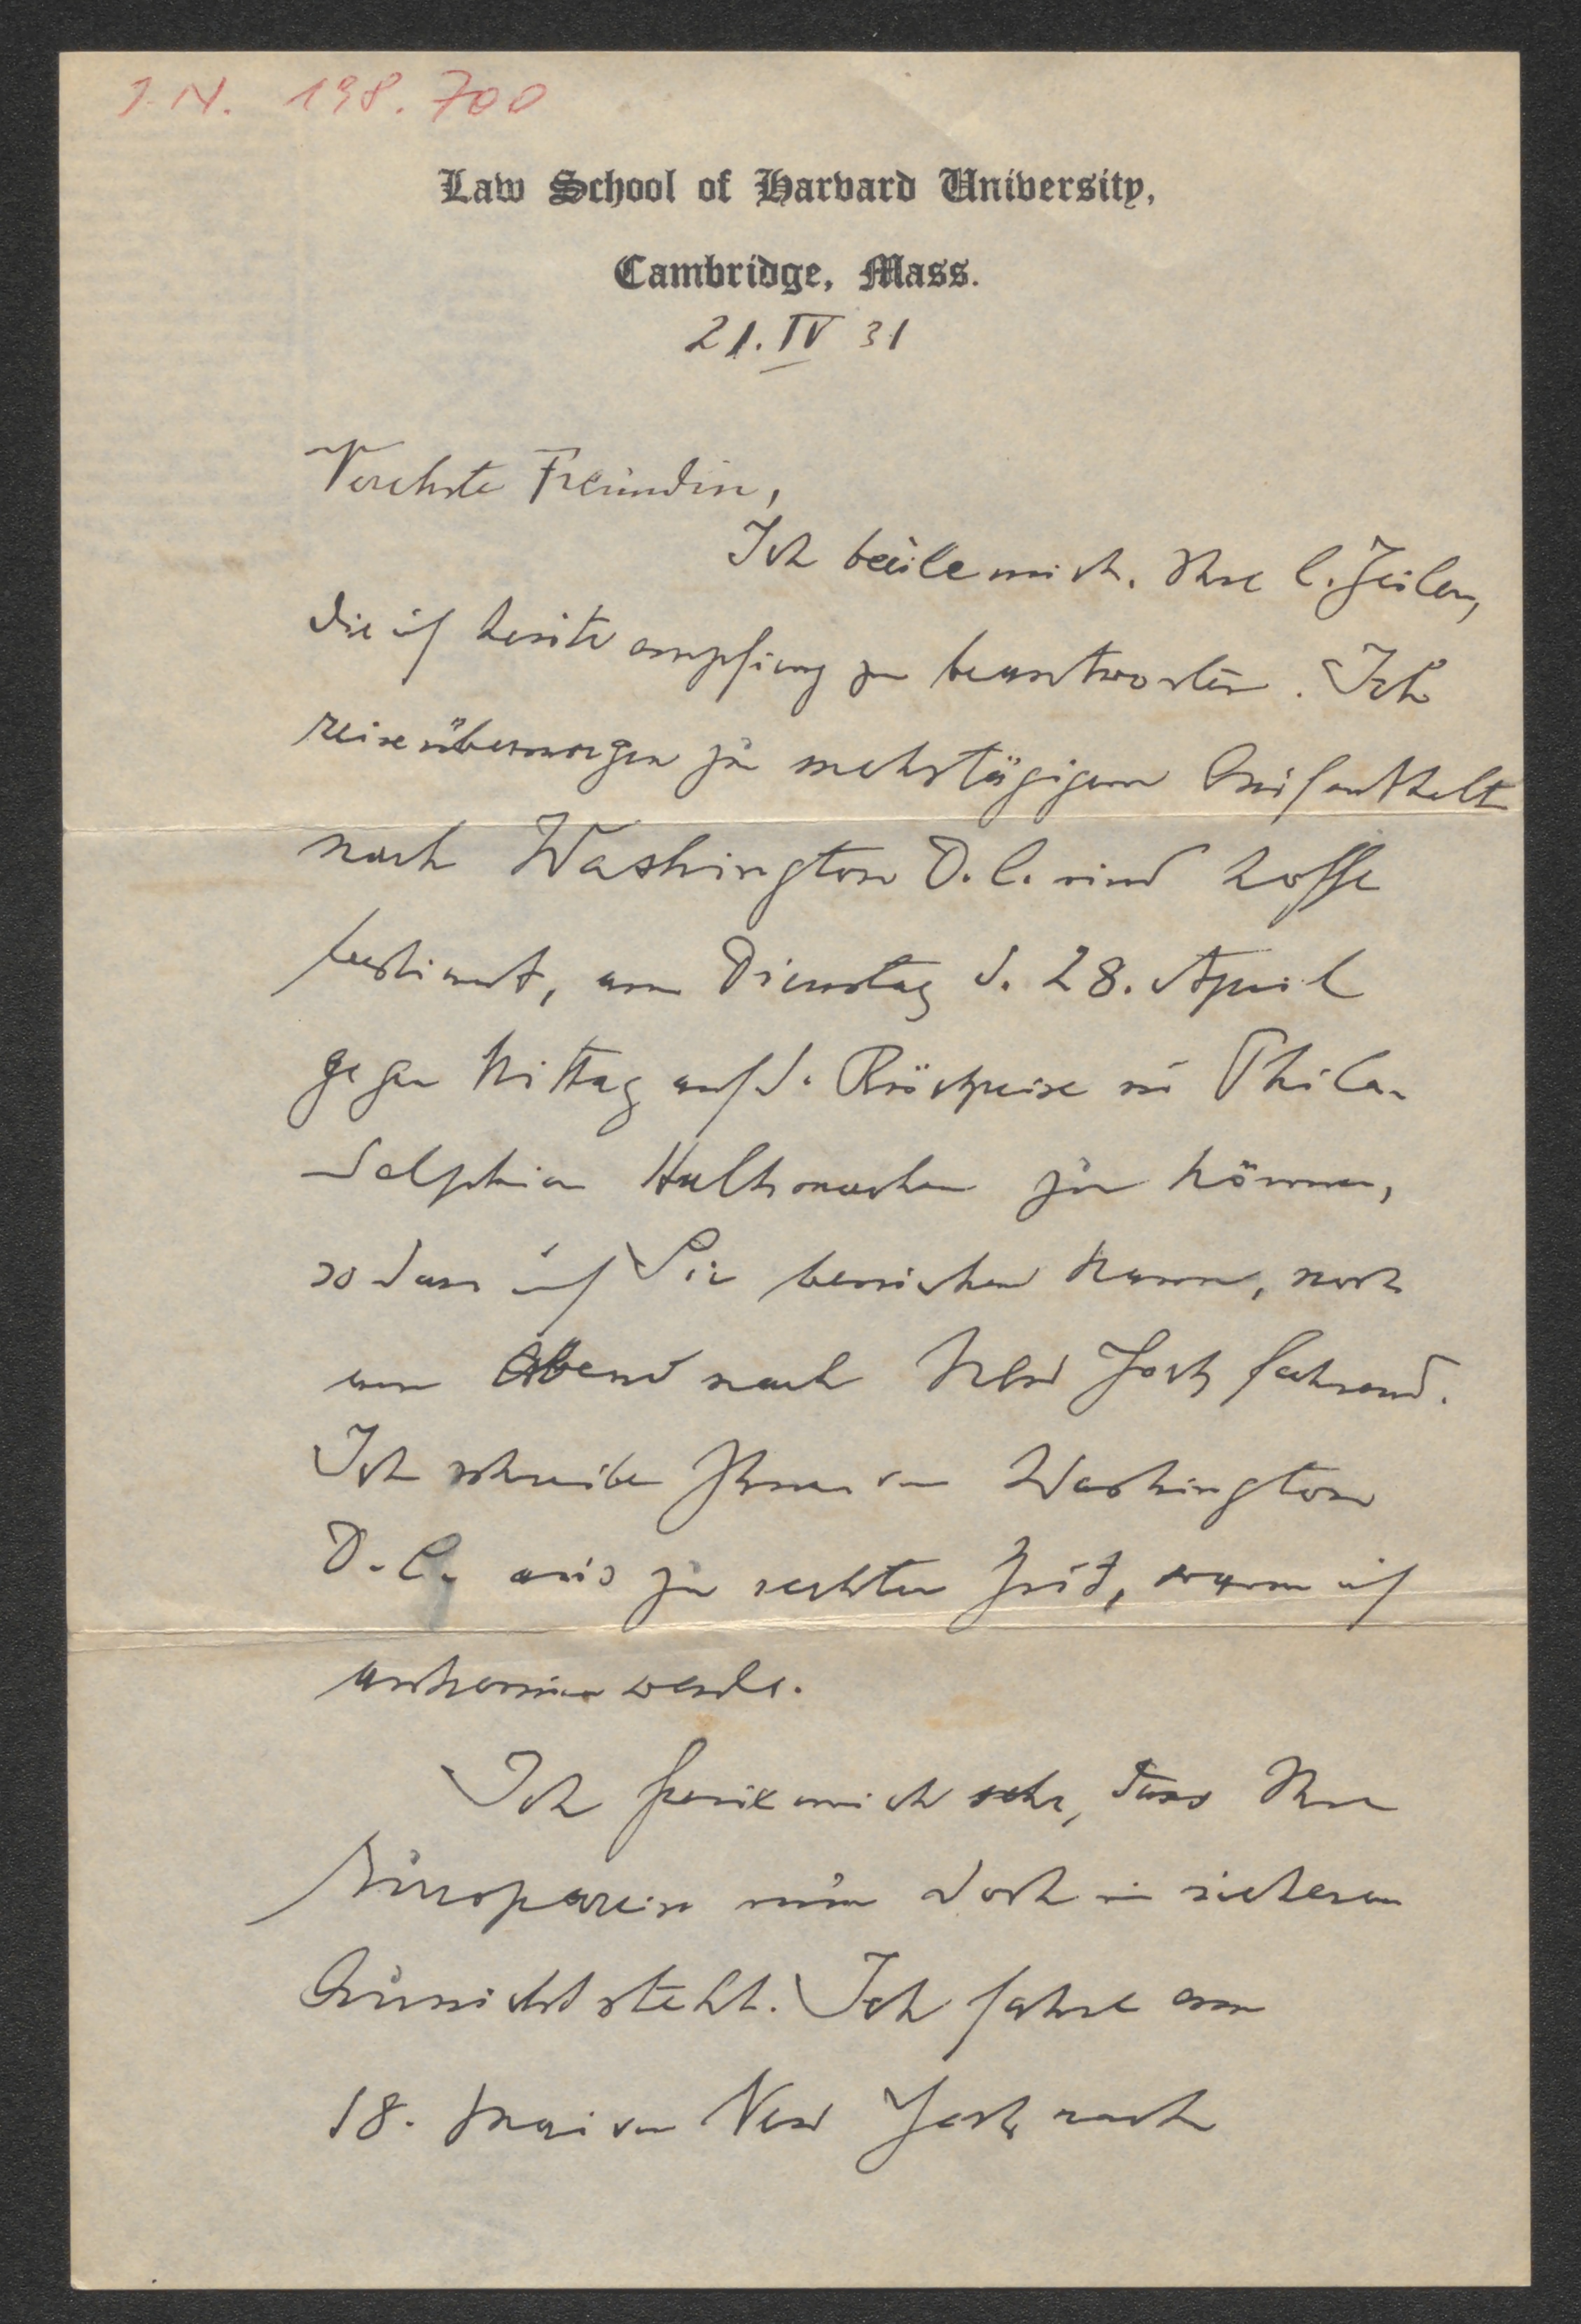 I.N. 198.700
Law School of Harvard University,
Cambridge, Mass.
21. IV 31
Verehrte Freundin,
Ich beeile mich, Ihre l. Zeilen,
die ich heute empfing zu beantworten. Ich
reise übermorgen zu mehrtägigem Aufenthalt
nach Washington D.C. und hoffe
bestimmt, am Dienstag d. 28. April
gegen Mittag auf d. Rückreise in Phila-
delphia Halt machen zu können,
so dass ich Sie besuchen kann, noch
am Abend nach New York fahrend.
Ich schreibe Ihnen von Washington
D.C. aus zu rechter Zeit, wann ich
ankommen werde.
Ich freue mich sehr, dass Ihre
Europareise nun doch in sicherer
Aussicht steht. Ich fahre am
18. Mai von New York nach